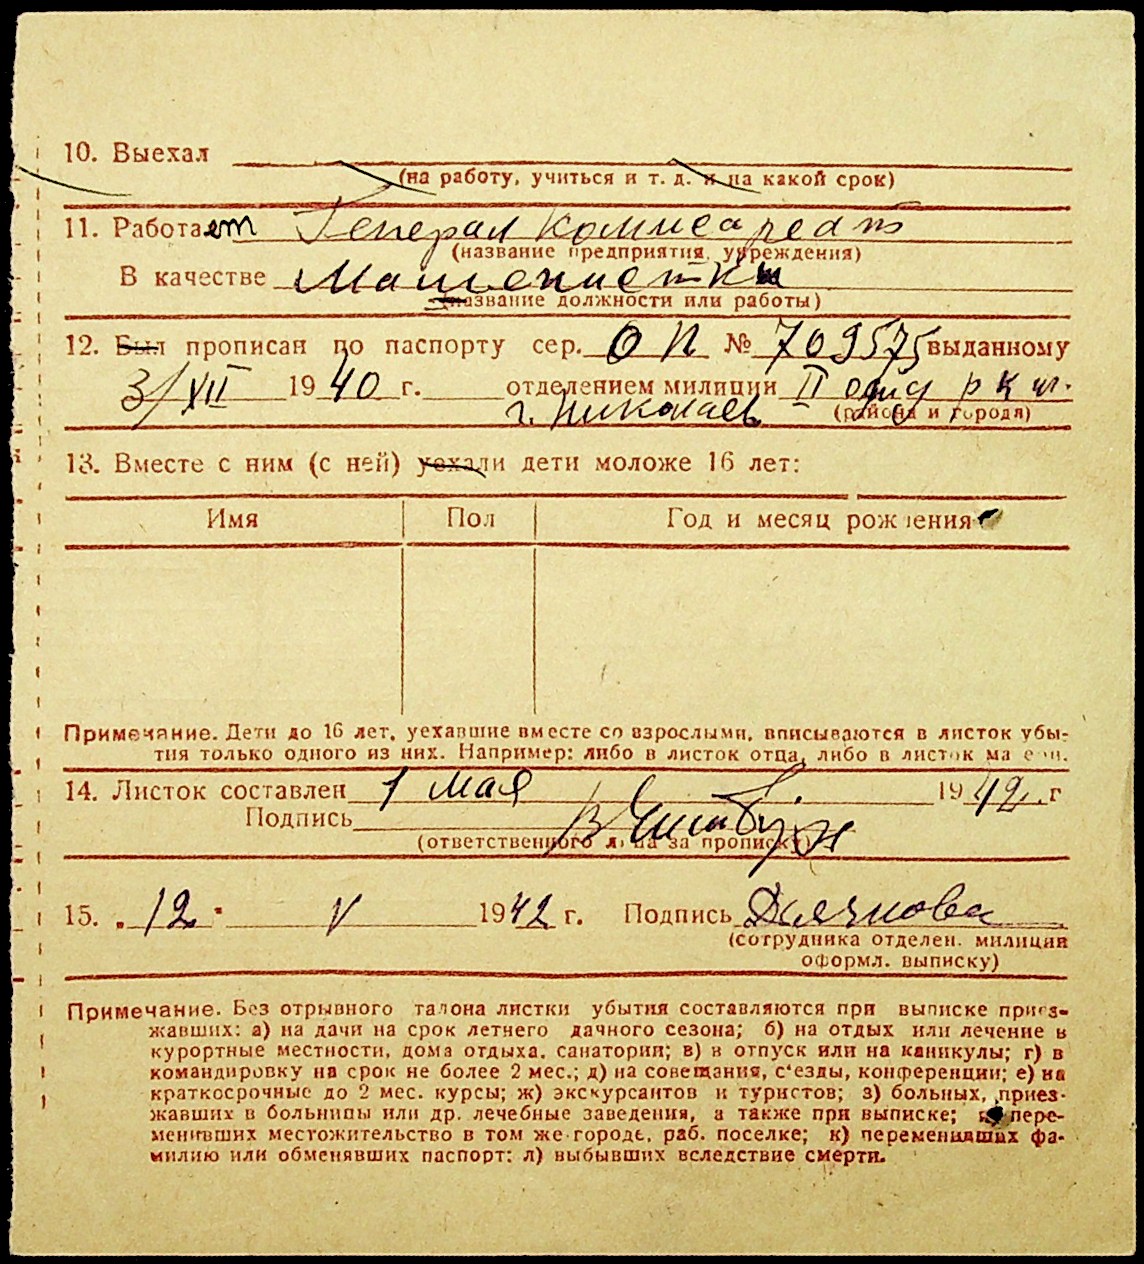 10. Выехал
(на работу, учиться и т. д. и на какой срок)
11. Работает Генерал Комисариат
(название предприятия, учреждения)
В качестве Машенистки
(название должности или работы)
12. Был прописан по паспорту сер. ОП № 709575 выданному
3/XII 1940 г. отделением милиции II отд р к м.
г. Николаев (района и города)
13. Вместе с ним (с ней) уехали дети моложе 16 лет:
Имя Пол Год и месяц рождения
Примечание. Дети до 16 лет, уехавшие вместе со взрослыми, вписываются в листок убы-
тия только одного из них. Например: либо в листок отца, либо в листок матери.
14. Листок составлен 1 мая 1942 г
Подпись
(ответственного лица за прописку)
15. „12" V 1942 г. Подпись Дьячкова
(сотрудника отделен. милиции
оформл. выписку)
Примечание. Без отрывного талона листки убытия составляются при выписке приез-
жавших: а) на дачи на срок летнего дачного сезона; б) на отдых или лечение в
курортные местности, дома отдыха, санатории; в) в отпуск или на каникулы; г) в
командировку на срок не более 2 мес.; д) на совещания, с'езды, конференции; е) на
краткосрочные до 2 мес. курсы; ж) экскурсантов и туристов; з) больных, приез-
жавших в больницы или др. лечебные заведения, а также при выписке; и) пере-
менивших местожительство в том же городе, раб. поселке; к) переменивших фа-
милию или обменявших паспорт; л) выбывших вследствие смерти.